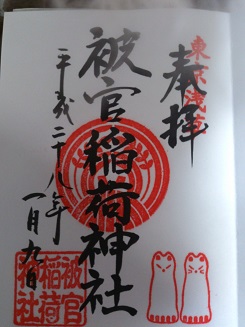 東京浅草
奉拝
被官稲荷神社
平成二十八年
一月九日
被官
稲荷
神社